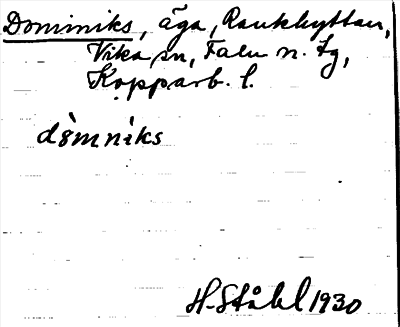 Dominiks, äga, Rankhyttan,
Vika sn, Falu n. tg,
Kopparb. l.
dòmnìks
H. Ståhl 1930